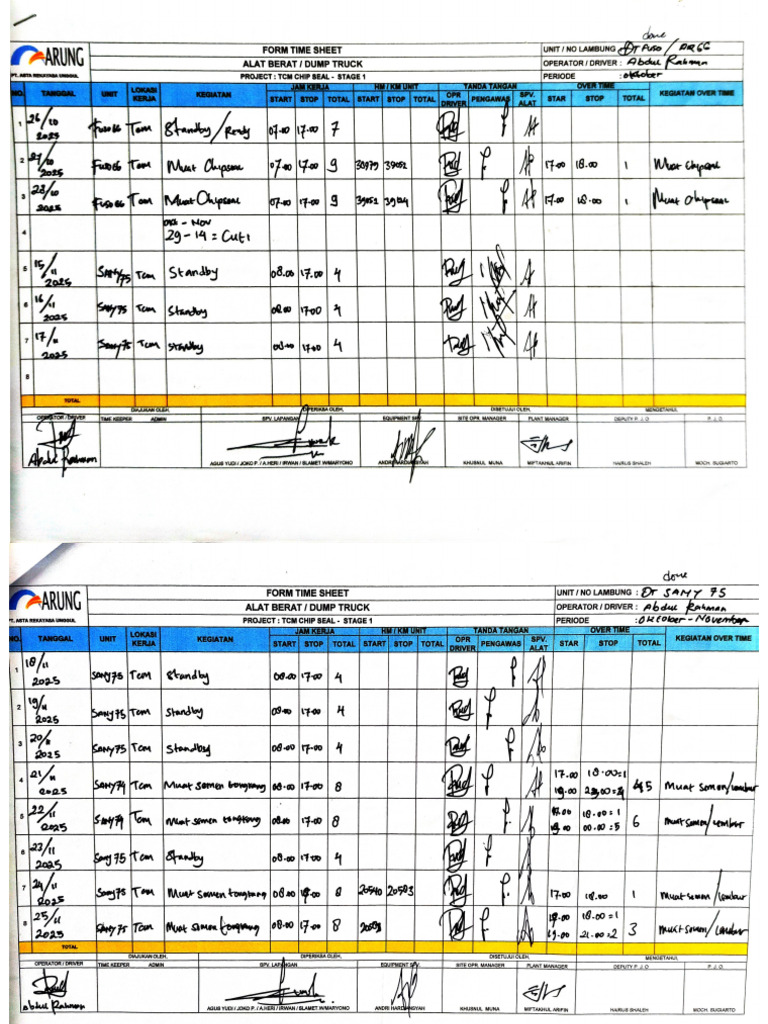 done
ARUNG
PT. ASTA REKAYASA UNGGUL
FORM TIME SHEET
ALAT BERAT / DUMP TRUCK
PROJECT : TCM CHIP SEAL - STAGE 1
UNIT / NO LAMBUNG : DT FUSO /
OPERATOR / DRIVER : Abdul Rahman
PERIODE : Oktober
NO. TANGGAL UNIT LOKASI KERJA KEGIATAN JAM KERJA HM / KM UNIT TANDA TANGAN OVER TIME KEGIATAN OVER TIME
START STOP TOTAL START STOP TOTAL OPR DRIVER PENGAWAS SPV. ALAT STAR STOP TOTAL
1 26/10 2025 FUSO 66 Tcm Standby / Ready 07.00 17.00 7
2 27/10 2025 FUSO 66 Tcm Muat Chipseal 07.00 17.00 9 38979 39052 17.00 18.00 1 Muat Chipseal
3 28/10 2025 FUSO 66 Tcm Muat Chipseal 07.00 17.00 9 39052 17.00 18.00 1 Muat Chipseal
4 Okt - Nov
29 - 14 = Cuti
5 15/11 2025 SANY 75 Tcm Standby 08.00 17.00 4
6 16/11 2025 SANY 75 Tcm Standby 08.00 17.00 4
7 17/11 2025 SANY 75 Tcm Standby 08.00 17.00 4
8
TOTAL
DIAJUKAN OLEH, DIPERIKSA OLEH, DISETUJUI OLEH, MENGETAHUI
OPERATOR / DRIVER TIME KEEPER ADMIN SPV. LAPANGAN EQUIPMENT SPV. SITE OPR. MANAGER PLANT MANAGER DEPUTY P. J. O P. J. O
Abdul Rahman AGUS YUDI / JOKO P. / A.HERI / IRWAN / SLAMET WIMARYONO ANDRI HARDIANSYAH KHUSNUL MUNA MIFTAKHUL ARIFIN HAIRUS SHALEH MOCH. SUGIARTO
done
ARUNG
PT. ASTA REKAYASA UNGGUL
FORM TIME SHEET
ALAT BERAT / DUMP TRUCK
PROJECT : TCM CHIP SEAL - STAGE 1
UNIT / NO LAMBUNG : DT SANY 75
OPERATOR / DRIVER : Abdul Rahman
PERIODE : Oktober - November
NO. TANGGAL UNIT LOKASI KERJA KEGIATAN JAM KERJA HM / KM UNIT TANDA TANGAN OVER TIME KEGIATAN OVER TIME
START STOP TOTAL START STOP TOTAL OPR DRIVER PENGAWAS SPV. ALAT STAR STOP TOTAL
1 18/11 2025 SANY 75 Tcm Standby 08.00 17.00 4
2 19/11 2025 SANY 75 Tcm Standby 08.00 17.00 4
3 20/11 2025 SANY 75 Tcm Standby 08.00 17.00 4
4 21/11 2025 SANY 74 Tcm Muat Semen tongkang 08.00 17.00 8 17.00 18.00=1 5 Muat Semen / lembur
19.00
5 22/11 2025 SANY 74 Tcm Muat Semen tongkang 08.00 17.00 8 17.00 18.00=1 6 Muat Semen / lembur
19.00 00.00=5
6 23/11 2025 SANY 75 Tcm Standby 08.00 17.00 4
7 24/11 2025 SANY 75 Tcm Muat Semen tongkang 08.00 8 20540 20583 17.00 18.00 1 Muat Semen / lembur
8 25/11 2025 SANY 75 Tcm Muat Semen tongkang 08.00 17.00 8 20583 17.00 18.00=1 3 Muat Semen / lembur
19.00 21.00=2
TOTAL
DIAJUKAN OLEH, DIPERIKSA OLEH, DISETUJUI OLEH, MENGETAHUI
OPERATOR / DRIVER TIME KEEPER ADMIN SPV. LAPANGAN EQUIPMENT SPV. SITE OPR. MANAGER PLANT MANAGER DEPUTY P. J. O P. J. O
Abdul Rahman AGUS YUDI / JOKO P. / A.HERI / IRWAN / SLAMET WIMARYONO ANDRI HARDIANSYAH KHUSNUL MUNA MIFTAKHUL ARIFIN HAIRUS SHALEH MOCH. SUGIARTO